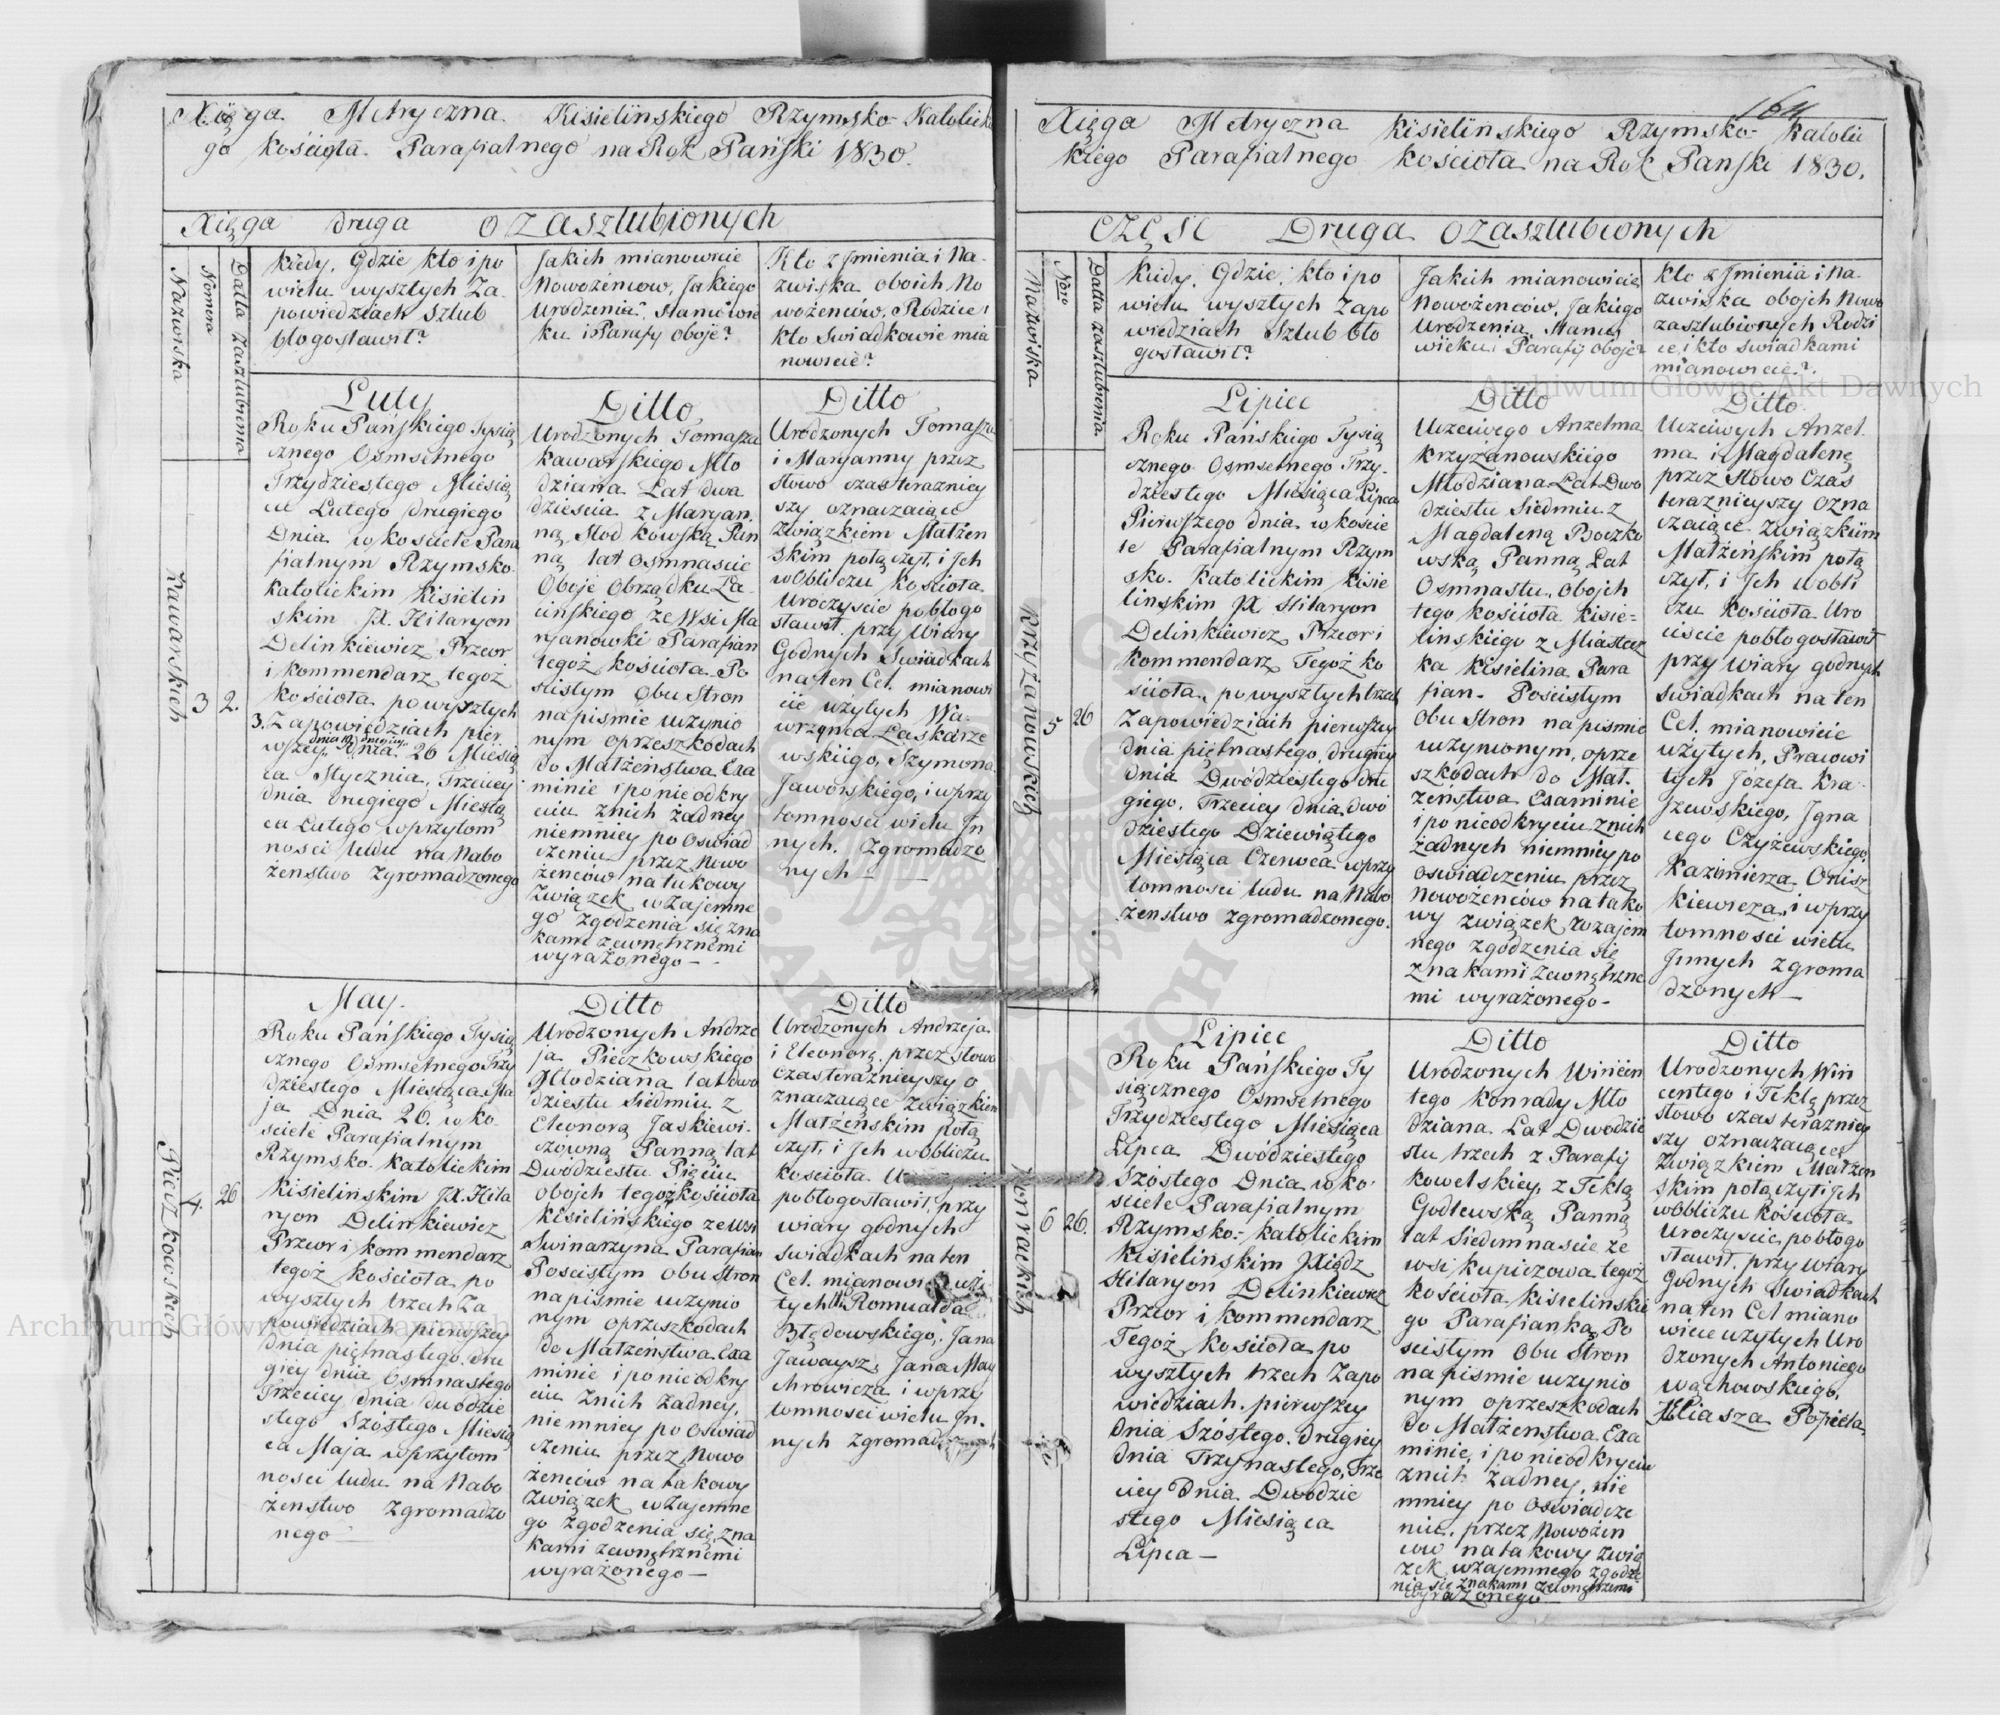 Xięga Metryczna Kisielinskiego Rzymsko-Katolickie
go kościoła Parafialnego na Rok Pański 1830.
Xięga druga o zaszlubionych
Nazwiska
Nomera
Datta zaszlubienia
Kiedy, Gdzie kto i po
wielu wyszłych Za-
powiedziach Szlub
błogosławił?
Jakich mianowicie
Nowożencow, Jakiego
Urodzenia, Stanu wie
ku i Parafy oboje?
Kto z Jmienia i Na-
zwiska oboich No
wożenców, Rodzice i
kto Swiadkowie mia
nowicie?
Kawarskich
3
2.
Luty
Roku Pańskiego Tysią
cznego Osmsetnego
Trzydziestego Miesią
ca Lutego drugiego
Dnia w kosciele Para
fialnym Rzymsko-
katolickim Kisielin
skim JX. Hilaryon
Delinkiewicz Przeor
i kommendarz tegoż
kościoła po wyszłych
3. Zapowiedziach pier
wszey dnia 19. drugiey
Dnia 26 Miesią
ca Stycznia, Trzeciey
dnia drugiego Miesią
ca Lutego w przytom
nosci ludu na Nabo
żenstwo zgromadzonego
Ditto
Urodzonych Tomasza
Kawarskiego Mło
dziana Lat dwa
dziescia z Maryan
ną Pan
ną lat osmnascie
Oboje Obrządku Ła-
cińskiego ze Wsi Ma
ryanowki Parafian
tegoż kościoła Po
scisłym Obu Stron
na pismie uczynio
nym o przeszkodach
do Małżeństwa Exa
minie i po nieodkry
ciu znich żadney
niemniey po Oswiad
czeniu przez Nowo
żenców na takowy
Związek wzajemne
go zgodzenia się zna
kami zewnętrznemi
wyrażonego —
Ditto
Urodzonych Tomasza
i Maryanny przez
słowo czas terazniey
szy oznaczaiące
Związkiem Małżen
skim połączył, i Jch
w Obliczu kościoła
Uroczyscie pobłogo
sławił przy Wiary
Godnych Swiadkach
na ten Cel mianowi
cie użytych Wa-
wrzyńca Łaskarze
wskiego, Szymona
Jaworskiego, i w przy
tomnosci wielu In
nych Zgromadzo
nych —
Pieczkowskich
4.
26
May.
Roku Pańskiego Tysią
cznego Osmsetnego Trzy
dziestego Miesiąca Ma
ja Dnia 26. w ko-
sciele Parafialnym
Rzymsko-katolickim
Kisielinskim JX. Hila
ryon Delinkiewicz
Przeor i kommendarz
tegoż kościoła po
wyszłych trzech Za
powiedziach pierwszey
dnia piętnastego, dru
giey dnia Osmnastego
Trzeciey dnia dwudzie
stego Szóstego Miesią
ca Maja w przytom
nosci ludu na Nabo
żenstwo zgromadzo
nego —
Ditto
Urodzonych Andrze
ja Pieczkowskiego
Młodziana lat dwu
dziestu Siedmiu z
Eleonorą Jaskiewi-
czówną Panną lat
Dwudziestu Pięciu
oboich tegoż kościoła
Kisielińskiego ze wsi
Swinarzyna Parafian
Poscisłym Obu Stron
na pismie uczynio
nym o przeszkodach
do Małżeństwa Exa
minie i po nieodkry
ciu znich żadney,
niemniey po Oswiad
czeniu przez Nowo
żencow na takowy
Związek wzajemne
go zgodzenia się zna
kami zewnętrznemi
wyrażonego —
Ditto
Urodzonych Andrzeja
i Eleonorą, przez słowo
czas teraznieyszy o
znaczaiące Związkiem
Małżeńskim połą
czył, i Jch w obliczu
kościoła
pobłogosławił, przy
wiary godnych
Swiadkach na ten
Cel mianowi uży
tych Romualda
Błędowskiego, Jana
Jawaysz, Jana May
chrowicza i w przy
tomnosci wielu In-
nych zgromadzonych
164
Xięga Metryczna Kisielinskiego Rzymsko-Katolic
kiego Parafialnego kościoła na Rok Pański 1830.
Część Druga o zaszlubionych
Nazwiska.
Nro
Datta zaszlubienia.
Kiedy, Gdzie, kto i po
wielu wyszłych Zapo
wiedziach Szlub bło
gosławił?
Jakich mianowicie
Nowożenców, Jakiego
Urodzenia, Stanu,
wieku i Parafij oboje?
kto z Jmienia i Na
zwiska obojch Nowo
zaszlubionych Rodzi
ce, i kto swiadkami
mianowicie?
Krzyżanowskich
5
26
Lipiec
Roku Pańskiego Tysią
cznego Osmsetnego Trzy-
dziestego Miesiąca Lipca
Pierwszego dnia w koscie
le Parafialnym Rzym
sko-Katolickim Kisie
linskim JX Hilaryon
Delinkiewicz Przeor i
kommendarz Tegoż ko
scioła, po wyszłych trzech
Zapowiedziach pierwszey
dnia piętnastego, drugiey
dnia Dwódziestego dru
giego, Trzeciey dnia dwó
dziestego Dziewiątego
Miesiąca Czerwca w przy
tomnosci ludu na Nabo
żenstwo zgromadzonego.
Ditto
Uczciwego Anzelma
Krzyżanowskiego
Młodziana Lat Dwo
dziestu Siedmiu z
Magdaleną Boczko
wską Panną Lat
Osmnastu, Obojch
tego kościoła Kisie-
linskiego z Miastecz
ka Kisielina Para
fian. Poscisłym
Obu Stron na pismie
uczynionym, o prze
szkodach do Mał-
żeństwa Examinie
i po nieodkryciu znich
żadnych niemniey po
oswiadczeniu przez
Nowożenców na tako
wy związek wzajem
nego zgodzenia się
znakami zewnętrzne
mi wyrażonego —
Ditto
Uczciwych Anzel-
ma i Magdalenę
przez Słowo Czas
teraznieyszy ozna
czaiące Związkiem
Małżeńskim połą
czył, i Jch w obli
czu kościoła Uro
czyscie pobłogosławił
przy wiary godnych
swiadkach na ten
Cel, mianowicie
użytych, Pracowi
tych Józefa Kra-
szewskiego, Jgna
cego Czyżewskiego,
Kazimierza Onisz
kiewicza, i w przy
tomnosci wielu
Jnnych zgroma
dzonych —
Konradkich
6
26.
Lipiec
Roku Pańskiego Ty
siącznego Osmsetnego
Trzydziestego Miesiąca
Lipca Dwódziestego
Szóstego Dnia w ko-
sciele Parafialnym
Rzymsko-katolickim
Kisielinskim Xiądz
Hilaryon Delinkiewicz
Przeor i kommendarz
Tegoż kościoła po
wyszłych trzech Zapo
wiedziach, pierwszey
dnia Szóstego, drugiey
dnia Trzynastego, Trze
ciey Dnia Dwodzie
stego Miesiąca
Lipca —
Ditto
Urodzonych Wincen
tego Konrady Mło
dziana Lat Dwodzie
stu trzech z Parafij
kowelskiey, z Teklą
Godlewską Panną
lat Siedmnascie ze
wsi Kupiczowa tegoż
kościoła kisielinskie
go Parafianką Po
scisłym Obu Stron
na pismie uczynio
nym o przeszkodach
do Małżenstwa Exa
minie, i po nieodkryciu
znich żadney, nie
mniey po Oswiadcze
niu, przez Nowożen
ców na takowy zwią
zek wzajemnego zgodze
nia się znakami zewnętrznemi
wyrażonego —
Ditto
Urodzonych Win
centego i Teklę przez
słowo czas teraźniey
szy oznaczaiące
Związkiem Małżen
skim połączył i Jch
w obliczu kościoła
Uroczyscie pobłogo
sławił, przy wiary
Godnych Swiadkach
na ten Cel miano
wicie użytych Uro
dzonych Antoniego
Wąchowskiego,
Eliasza Popiela
Archiwum Główne Akt Dawnych
Archiwum Główne Akt Dawnych